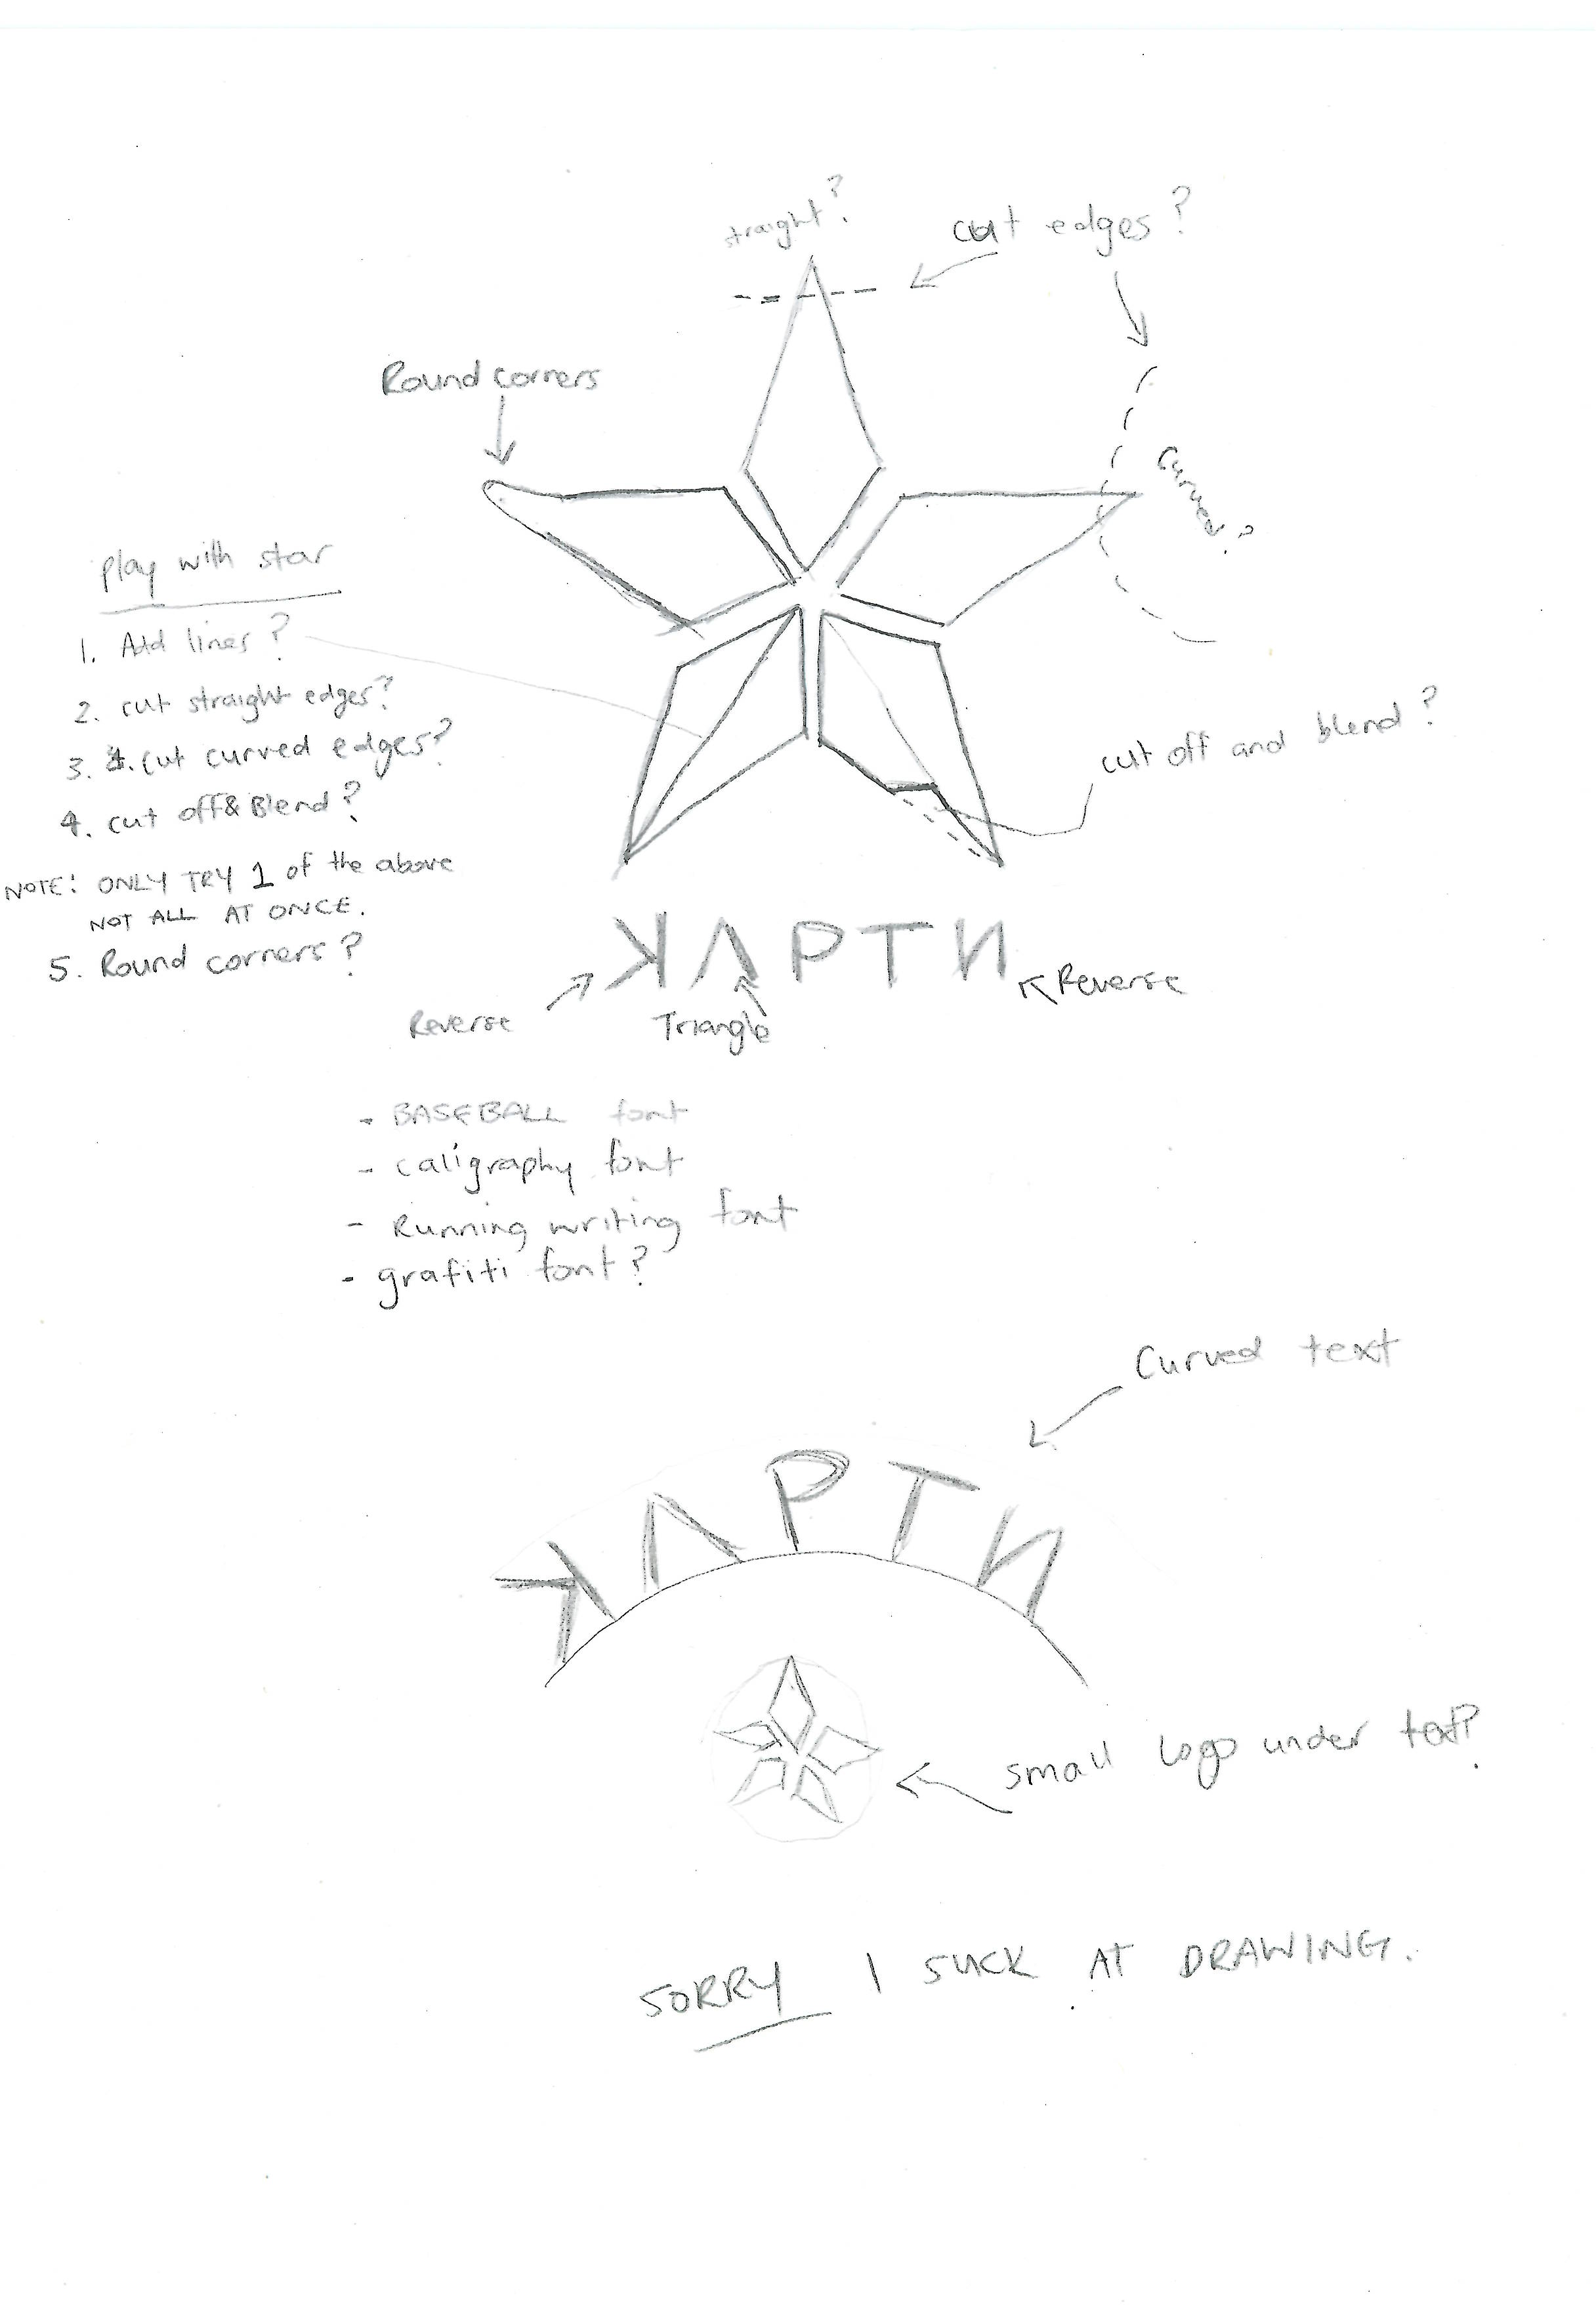 straight?
cut edges?
Round corners
curved?
Play with star
1. Add lines?
2. cut straight edges?
3. cut curved edges?
4. cut off & Blend?
NOTE: ONLY TRY 1 of the above
NOT ALL AT ONCE.
5. Round corners?
cut off and blend?
ꓘΛPTИ
Reverse
Triangle
Reverse
- BASEBALL font
- caligraphy font
- Running writing font
- grafiti font?
Curved text
ꓘΛPTИ
small logo under text?
SORRY I SUCK AT DRAWING.